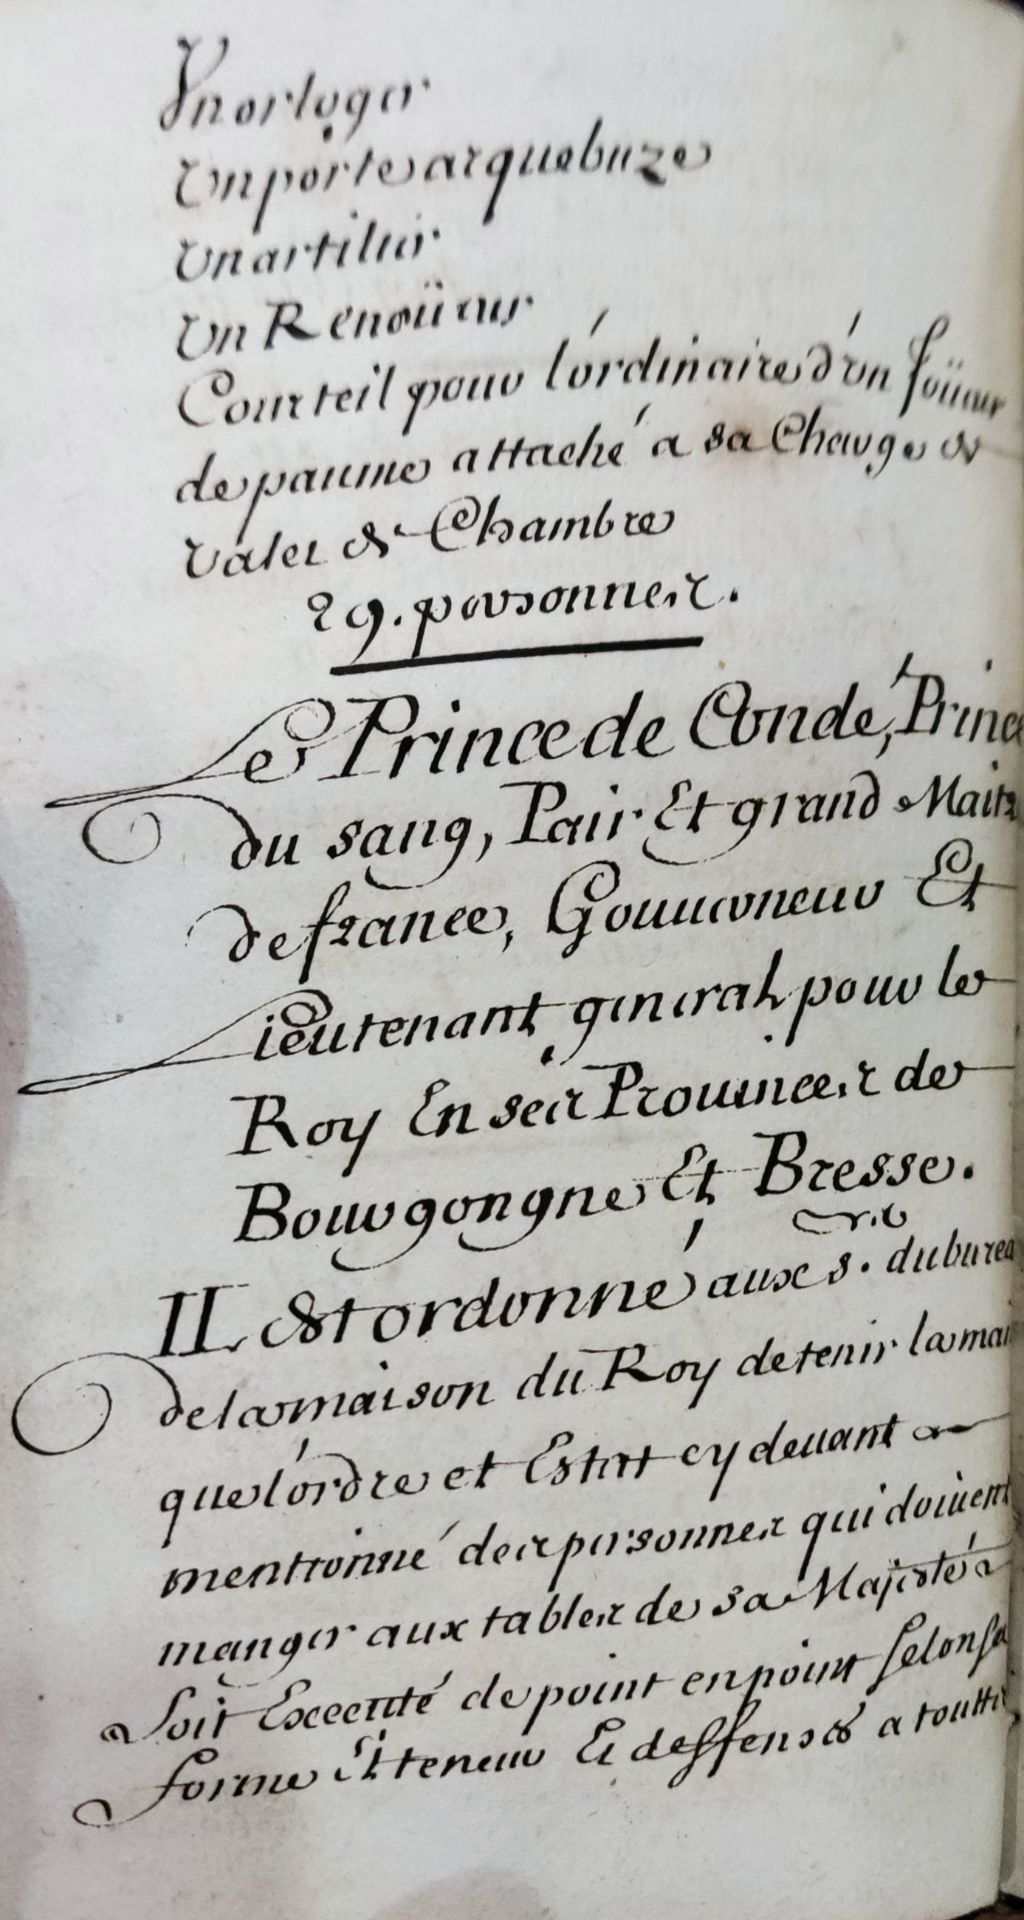 Vn orloger
Vn porte arquebuze
Vn artilier
Vn Renoüeur
Con.er teil pour l'ordinaire d'vn Joüeur
de paume attaché a sa Charge de
valet de Chambre
29. personnes.
Le Prince de Condé, Prince
du sang, Pair Et grand Maitre
de france, Gouuerneur Et
Lieutenant general pour le
Roy En ses Prouinces de
Bourgongne Et Bresse.
IL Est ordonné aux s.rs du bureau
de la maison du Roy de tenir la main
que l'ordre et Estat cy deuant
mentionné des personnes qui doiuent
manger aux tables de sa Majesté
Soit Executé de point en point selon sa
forme Et teneur Et deffenses a toutte